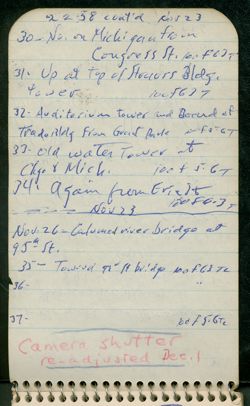 2 2 58 cont'd Nov 23
30 - No. on Michigan from
Congress St. 100 f 6.3 T
31. Up at top of Bldg.
Tower. 100 f 6.3 T
32. Auditorium tower and Board of
Trade Bldg from Grant Park f 5.6 T
33 - Old water Tower at
Chgo & Mich. 100 f 5.6 T
34 - Again from Erie St
100 f 6.3 T
Nov 23
Nov. 26 - Calumet river bridge at
95th St.
35 - Toward 92nd St bridge 100 f 6.3 T2
36 - "
37 - 100 f 5.6 T2
Camera shutter
re-adjusted Dec. 1